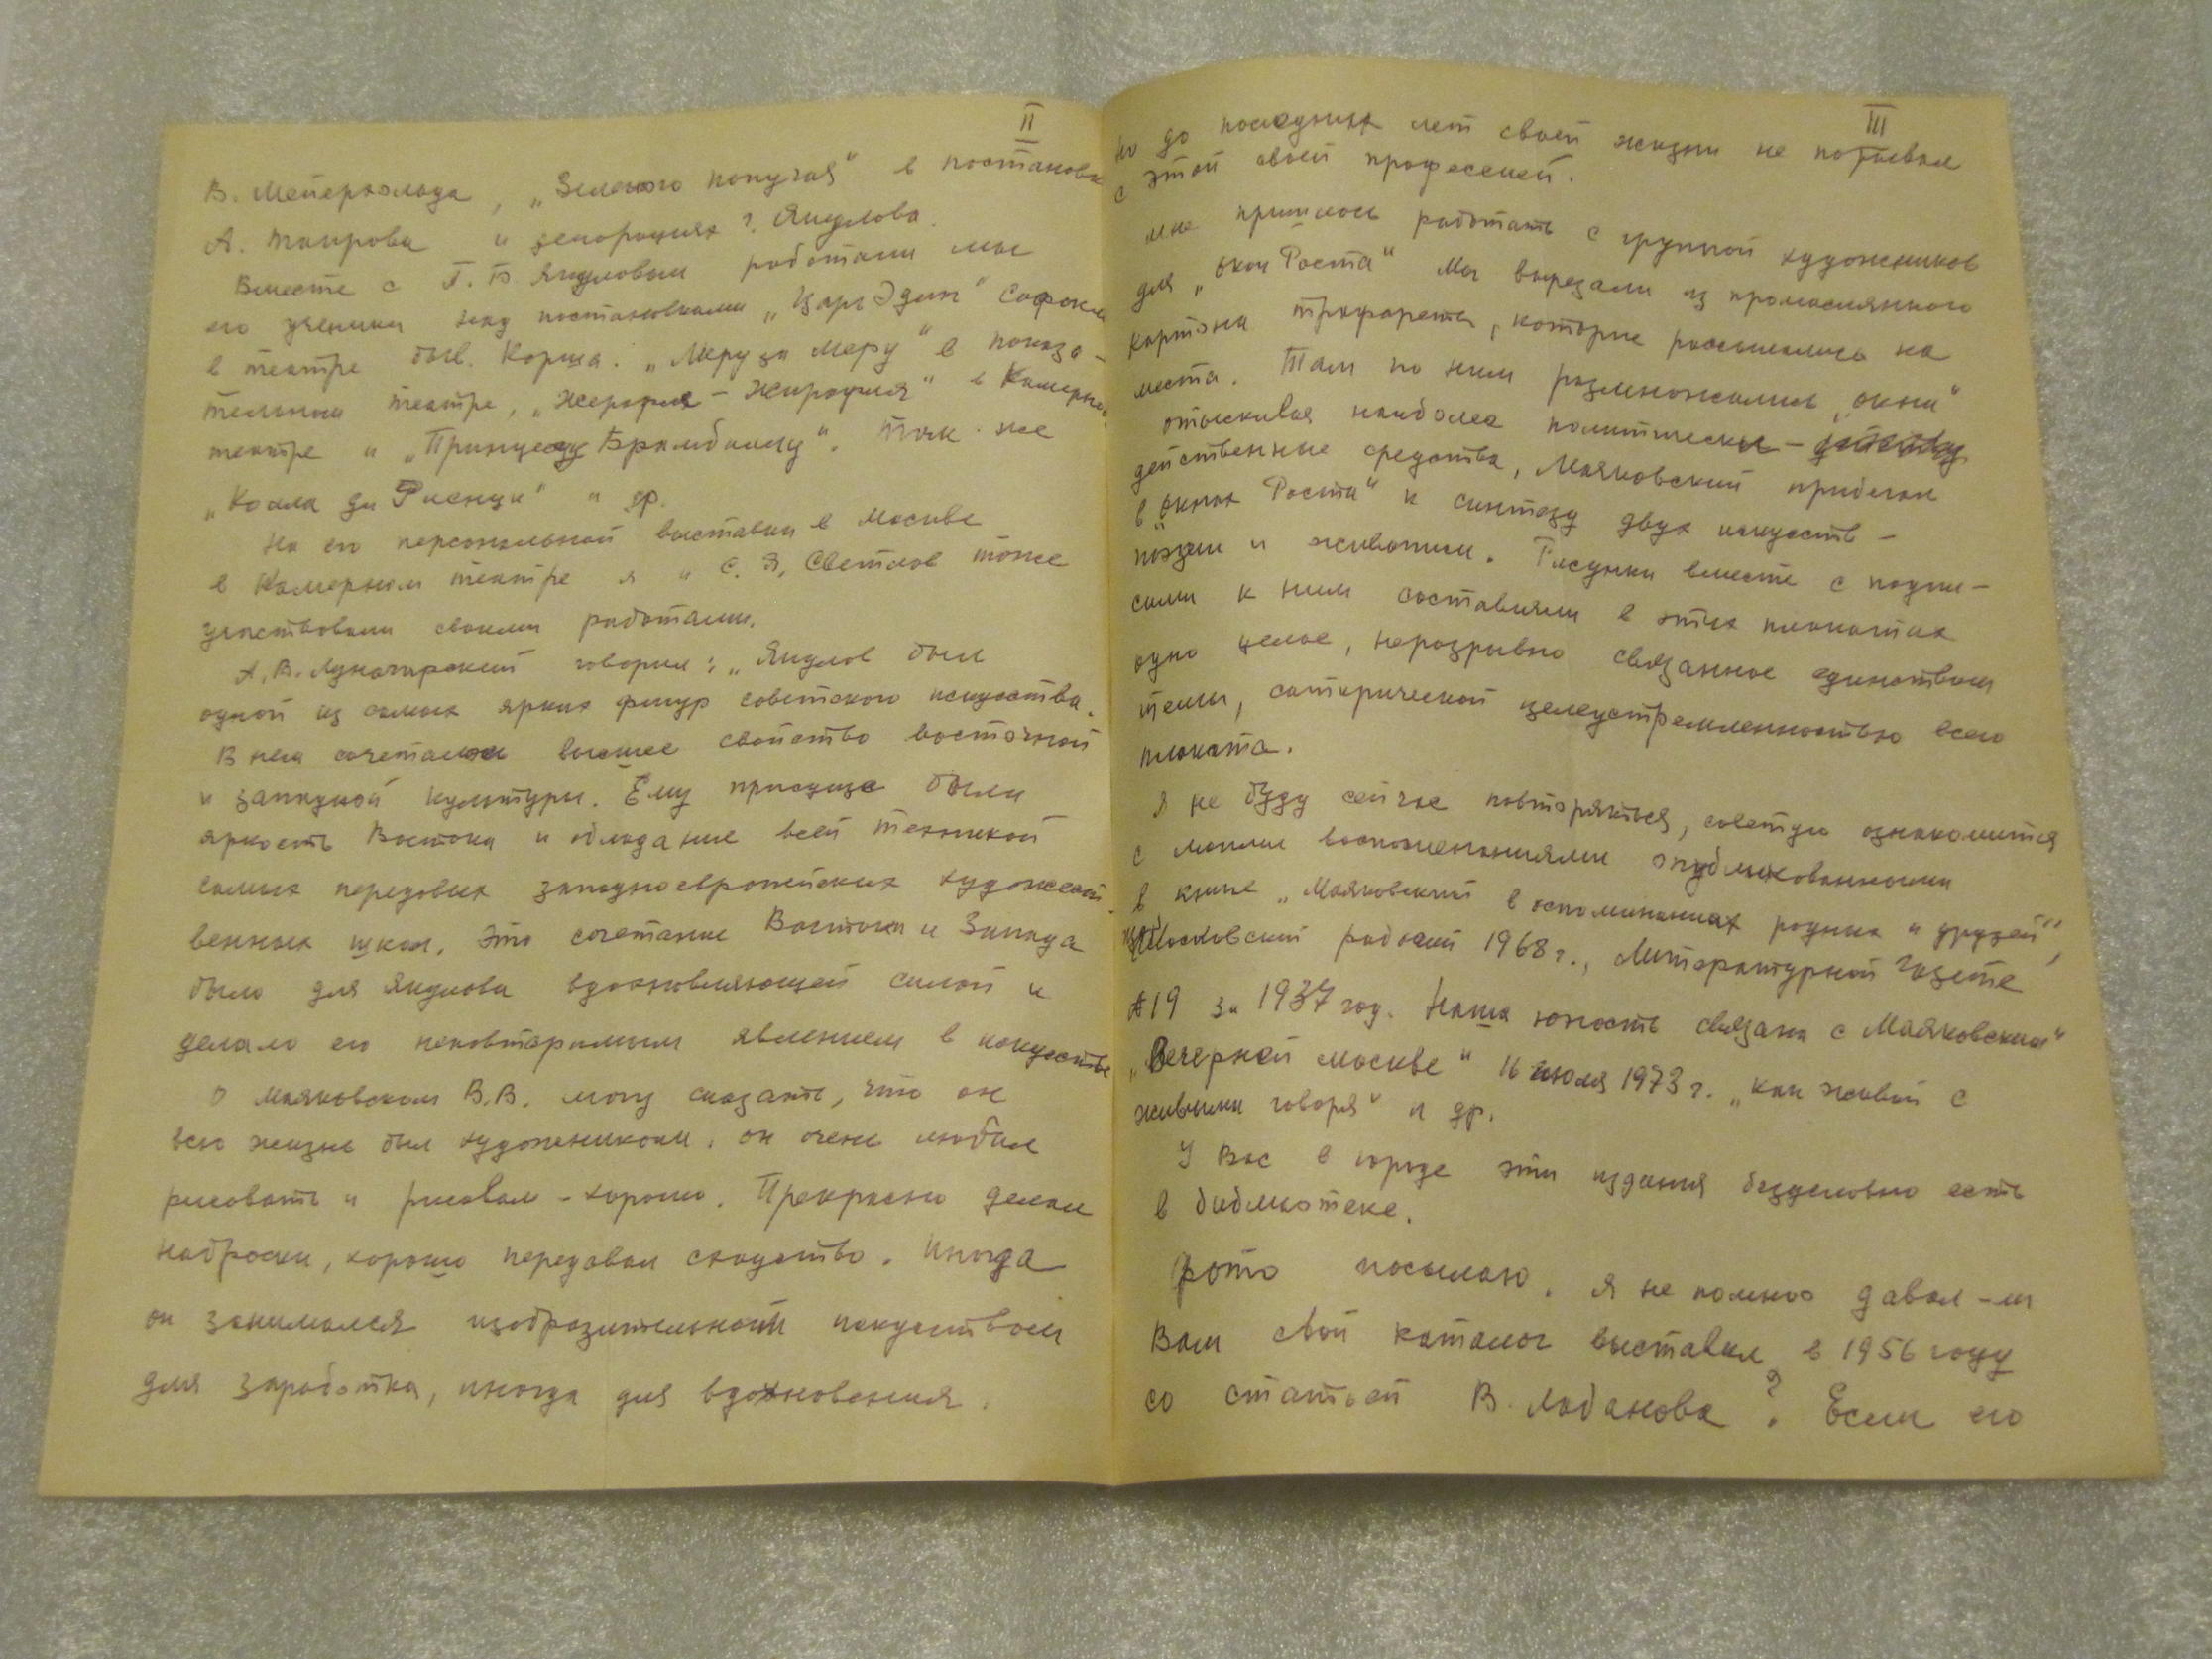 II
В. Мейерхольда, „Зеленого попугая" в постановке
А. Таирова и декорациях Г. Якулова.
Вместе с Г. Б. Якуловым работали мы
его ученики над постановками „Царь Эдип" Софокла
в театре быв. Корша. „Меру за меру" в показа-
тельном театре, „Жирофле-Жирофля" в Камерном
театре и „Принцессу Брамбиллу". Так же
„Кола ди Риенци" и др.
На его персональной выставки в Москве
в Камерном театре я и С. Я. Светлов тоже
участвовали своими работами.
А. В. Луначарский говорил: „Якулов был
одной из самых ярких фигур советского искусства.
В нем сочетались высшее свойство восточной
и западной культуры. Ему присуще были
яркость Востока и обладание всей техникой
самых передовых западноевропейских художест-
венных школ. Это сочетание Востока и Запада
было для Якулова вдохновляющей силой и
делало его неповторимым явлением в искусстве
О Маяковском В.В. могу сказать, что он
всю жизнь был художником. он очень любил
рисовать и рисовал - хорошо. Прекрасно делал
наброски, хорошо передавал сходство. Иногда
он занимался изобразительным искусством
для заработка, иногда для вдохновения.
III
но до последних лет своей жизни не порывал
с этой своей профессией.
Мне пришлось работать с группой художников
для „Окон Роста" Мы вырезали из промаслянного
картона трафареты, которые рассылались на
места. Там по ним размножались „окна"
отыскивая наиболее политически -
действенные средства, Маяковский прибегал
в „Окнах Роста" к синтезу двух искусств -
поэзии и живописи. Рисунки вместе с подпи-
сями к ним составляли в этих плакатах
одно целое, неразрывно связанное единством
темы, сатирической целеустремленностью всего
плаката.
Я не буду сейчас повторяться, советую ознакомится
с моими воспоменаниями опубликованными
в книге „Маяковский в воспоминаниях родных и друзей",
Московский рабочий 1968 г., Литературной газете
№19 за 1937 год. Наша юность связана с Маяковским"
„Вечерней Москве" 16 июля 1973 г. „Как живой с
живыми говоря" и др.
У Вас в городе эти издания безусловно есть
в библиотеке.
Фото посылаю. Я не помню давал-ли
Вам свой каталог выставки в 1956 году
со статьей В. Лобанова? Если его